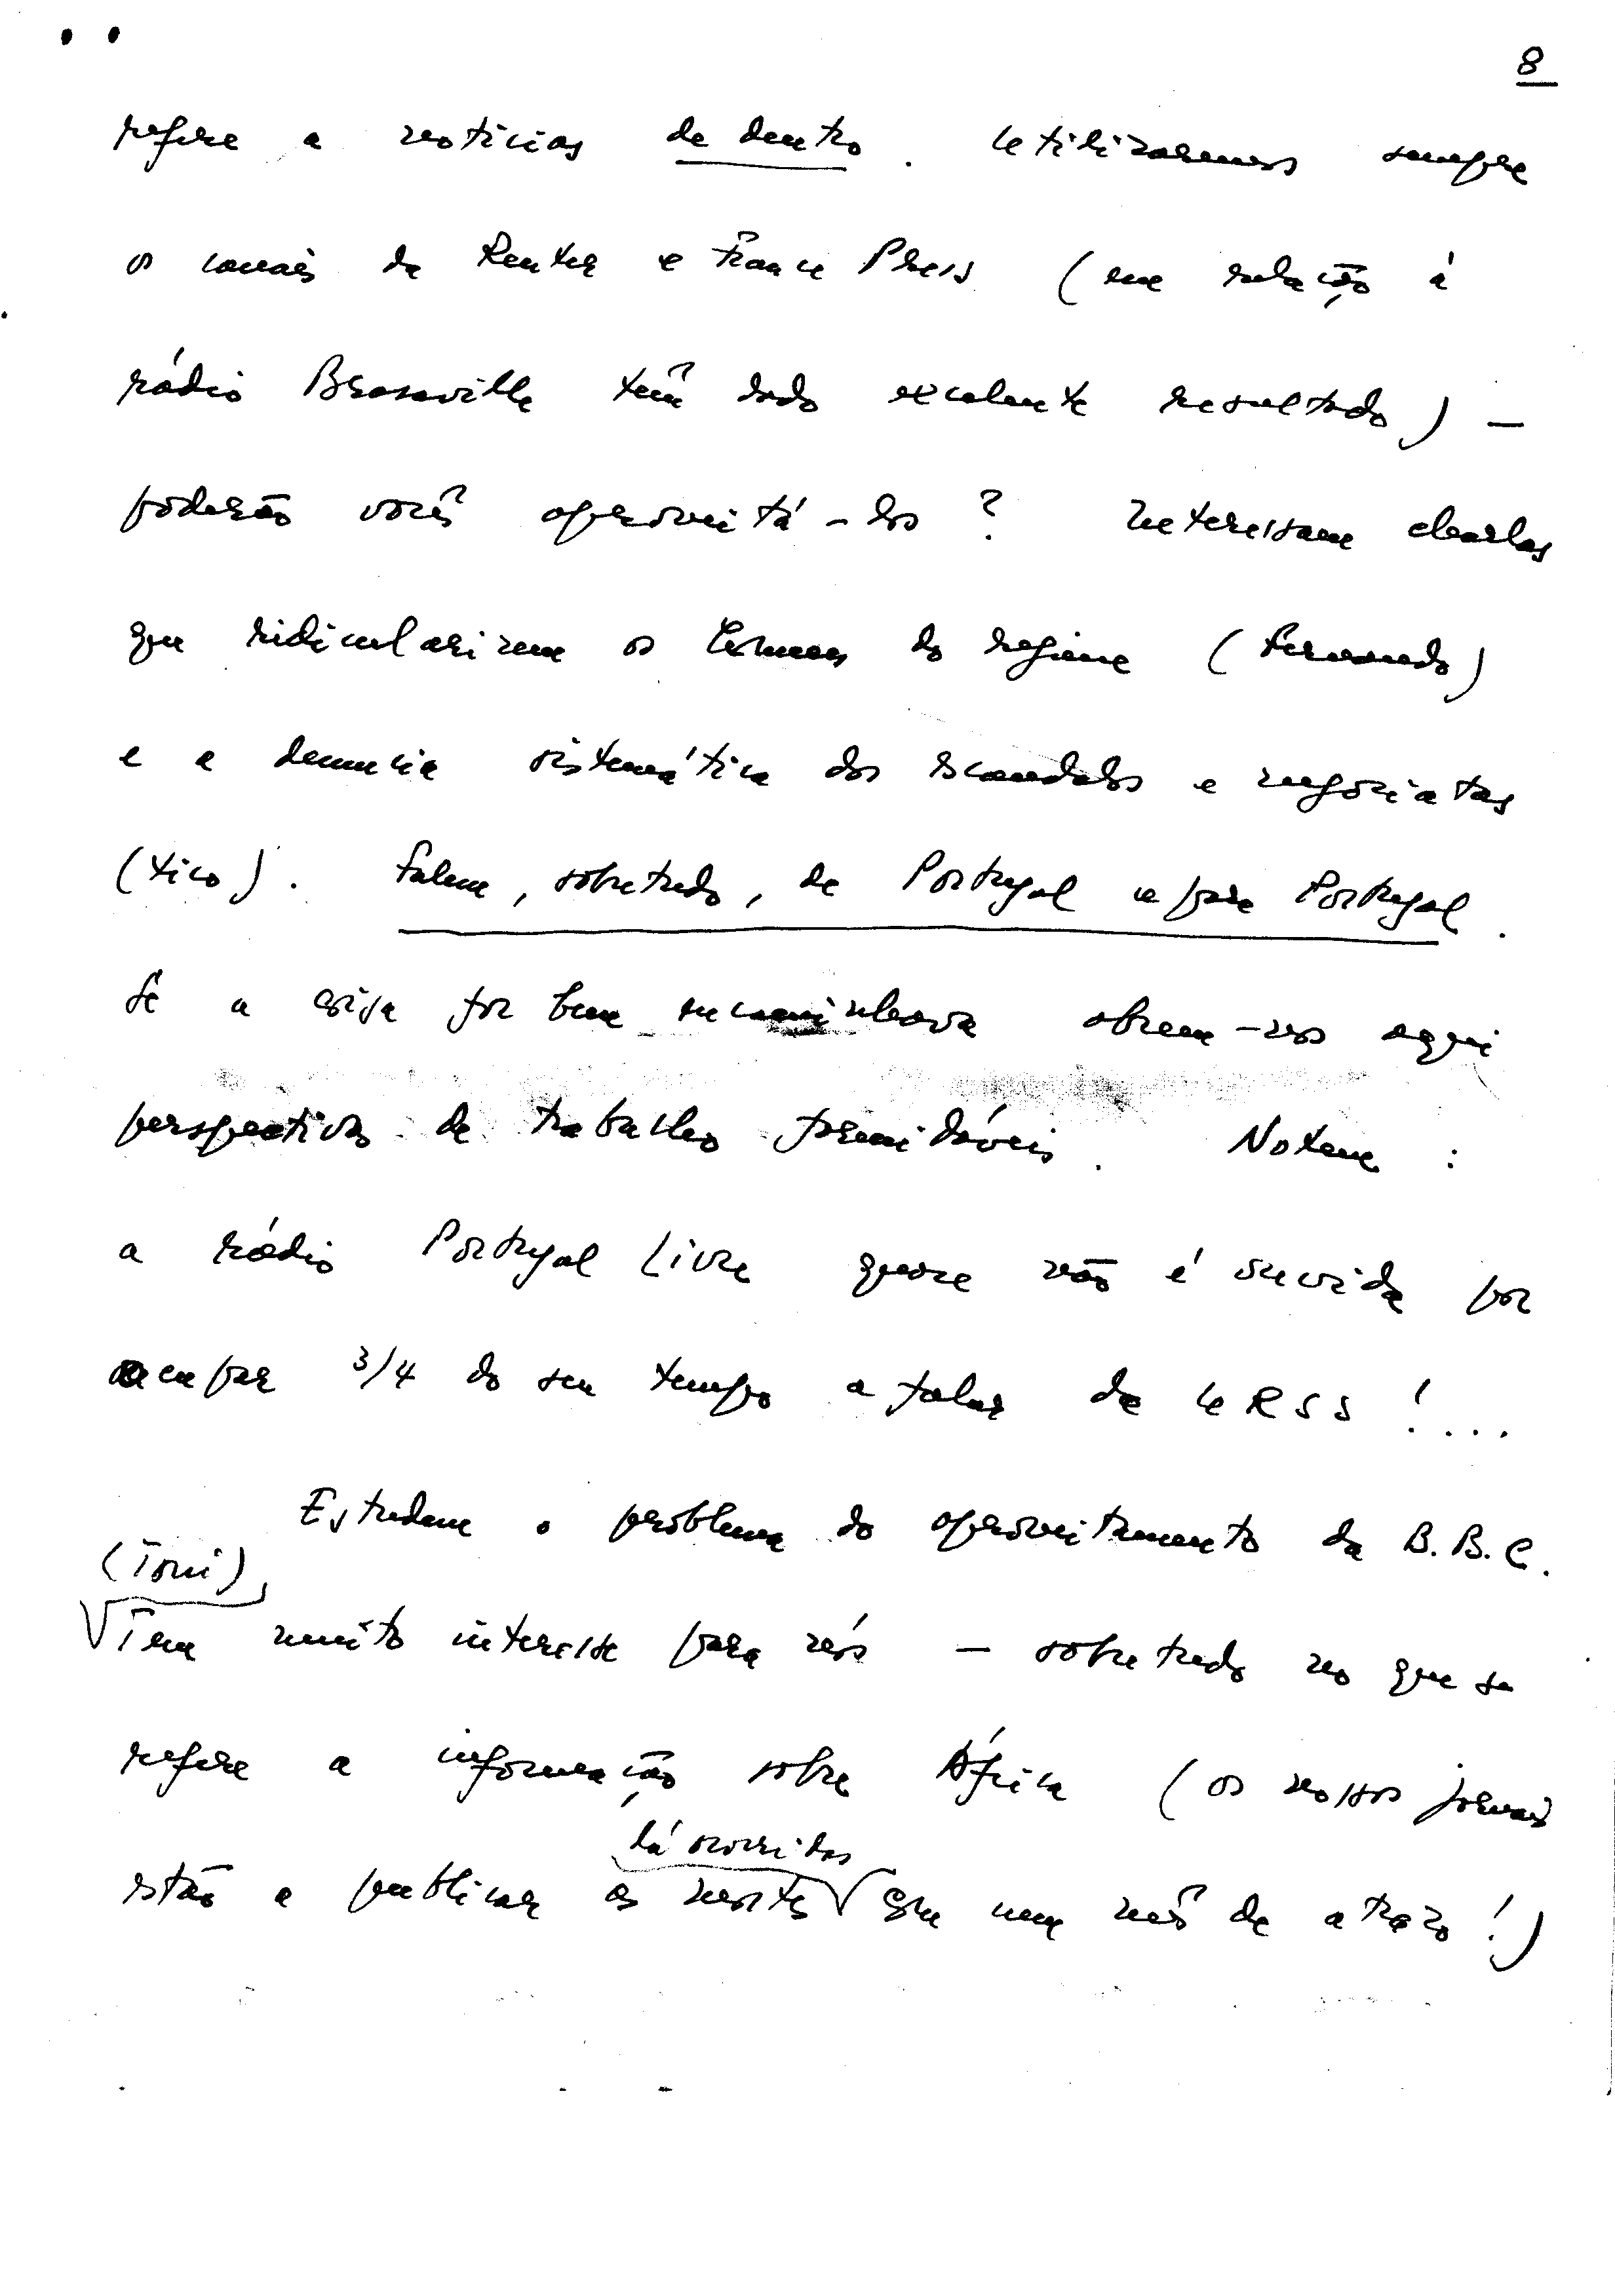 8
refere a noticias de dentro. Utilizaremos sempre
os canais da Reuter e France Press (em relação á
rádio Brazaville têm dado excelente resultado) —
poderão vocês aproveitá-los? Interessam charlas
que ridicularizem os homens do regime (Fernando)
e a denuncia sistemática dos escandalos e negociatas
(tico). Falem, sobretudo, de Portugal e para Portugal.
Se a coisa for bem encaminhada abrem-nos aqui
perspectivas de trabalho formidáveis. Notem:
a rádio Portugal Livre quase não é ouvida por
ocupar 3/4 do seu tempo a falar da URSS!...
Estudem o problema do aproveitamento da B.B.C.
(Toni)
Tem muito interesse para nós — sobretudo no que se
refere a informação sobre África (os nossos jornais
lá ocorridas
estão a publicar as com um mês de atrazo!)